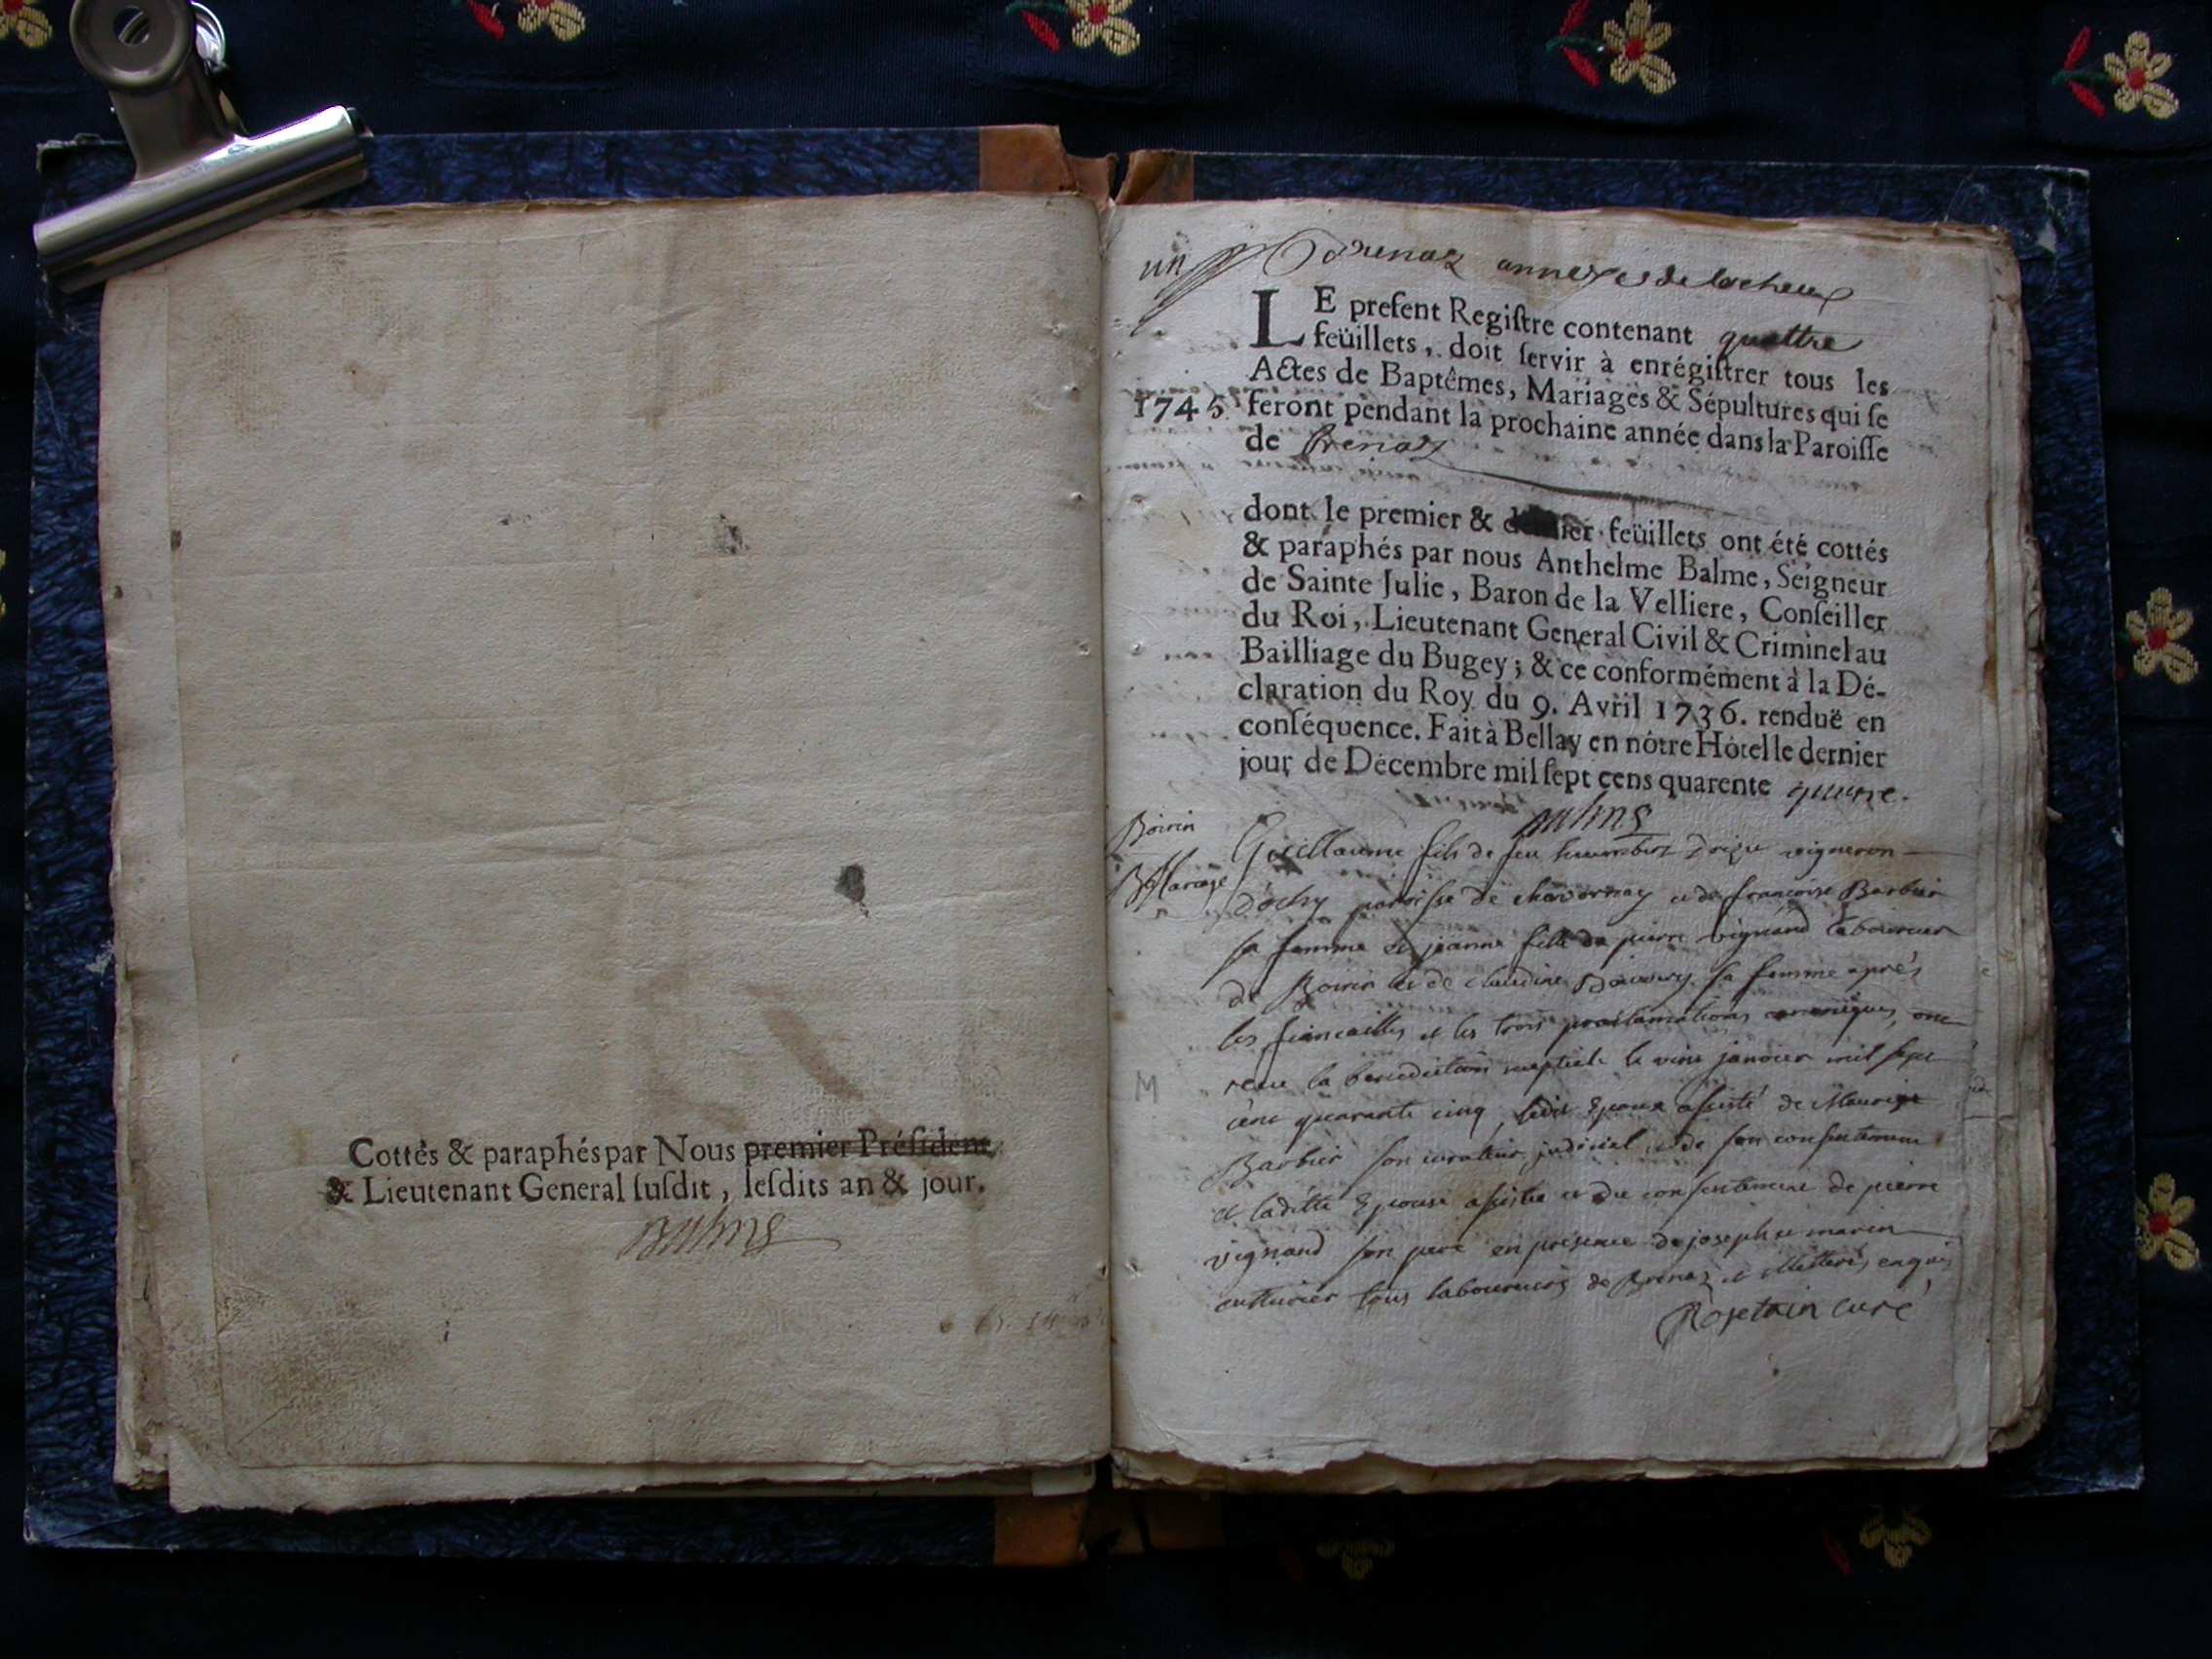 Cottés & paraphés par Nous premier Préſident
& Lieutenant General ſuſdit, leſdits an & jour.
Balme
un
Brenaz annexe de lochieu
LE preſent Regiſtre contenant quattre
feüillets, doit ſervir à enrégiſtrer tous les
Actes de Baptêmes, Mariages & Sépultures qui ſe
1745. feront pendant la prochaine année dans la Paroiſſe
de Brenaz
dont le premier & dernier feüillets ont été cottés
& paraphés par nous Anthelme Balme, Seigneur
de Sainte Julie, Baron de la Velliere, Conſeiller
du Roi, Lieutenant General Civil & Criminel au
Bailliage du Bugey; & ce conformément à la Dé-
claration du Roy du 9. Avril 1736. renduë en
conſéquence. Fait à Bellay en nôtre Hôtel le dernier
jour de Décembre mil ſept cens quarente quatre.
Balme
Boirin
Mariage
Guillaume fils de feu humbert vigneron
paroisse de chavornay et de francoise Barbier
sa femme et jeanne fille de pierre vignand laboureur
de Boirin et de claudine sa femme après
les fiancailles et les trois proclamations canoniques, ont
receu la benediction nuptiale le vint janvier mil sept
cent quarante cinq, ledit Epoux assisté de Maurice
Barbier son curateur judiciel et de son consentement
et laditte Epouse assistée et du consentement de pierre
vignand son pere en présence de joseph et marin
cutturier tous laboureurs de Brenaz et illitterés enquis
Rosetain curé
M